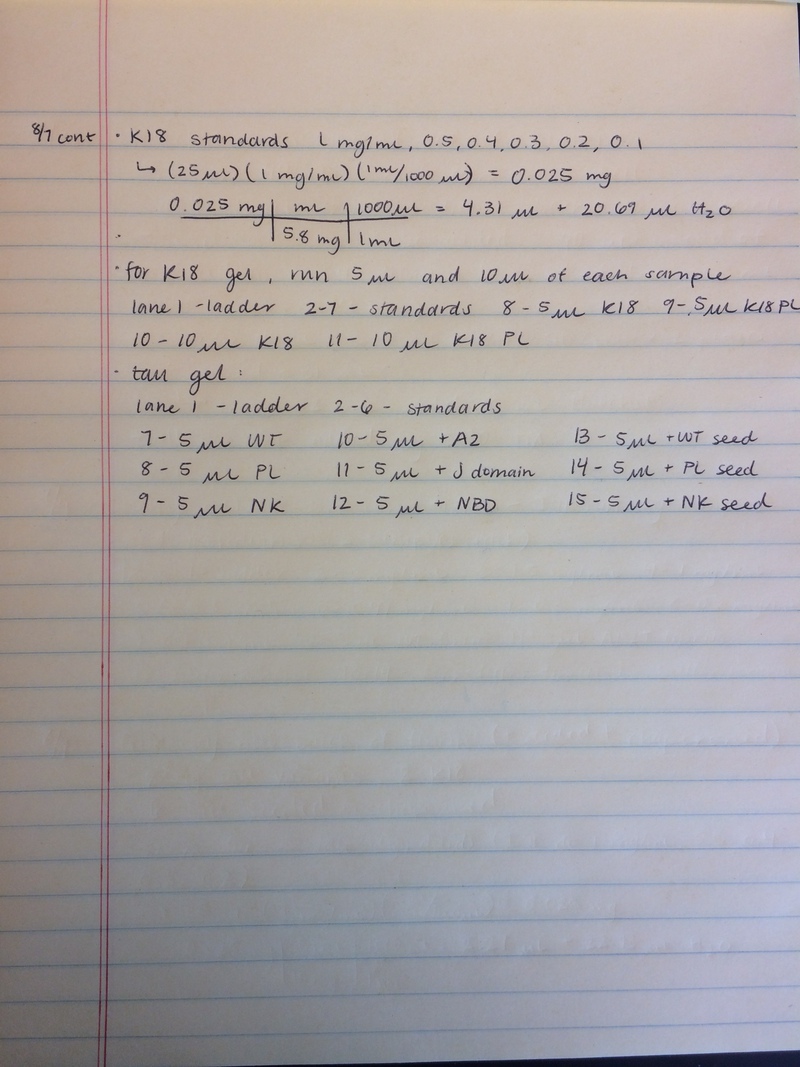 8/7 cont · K18 standards 1 mg/mL, 0.5, 0.4, 0.3, 0.2, 0.1
↳ (25 µl)(1 mg/mL)(1mL/1000 µl) = 0.025 mg
0.025 mg | mL | 1000µl = 4.31 µl + 20.69 µl H2O
5.8 mg | 1mL
· for K18 gel, run 5 µl and 10 µl of each sample
lane 1 - ladder 2-7 - standards 8 - 5µl K18 9 - 5µl K18 PL
10 - 10 µl K18 11 - 10 µl K18 PL
· tau gel:
lane 1 - ladder 2-6 - standards
7 - 5 µl WT 10 - 5 µl + A2 13 - 5µl + WT seed
8 - 5 µl PL 11 - 5 µl + J domain 14 - 5µl + PL seed
9 - 5 µl NK 12 - 5 µl + NBD 15 - 5µl + NK seed